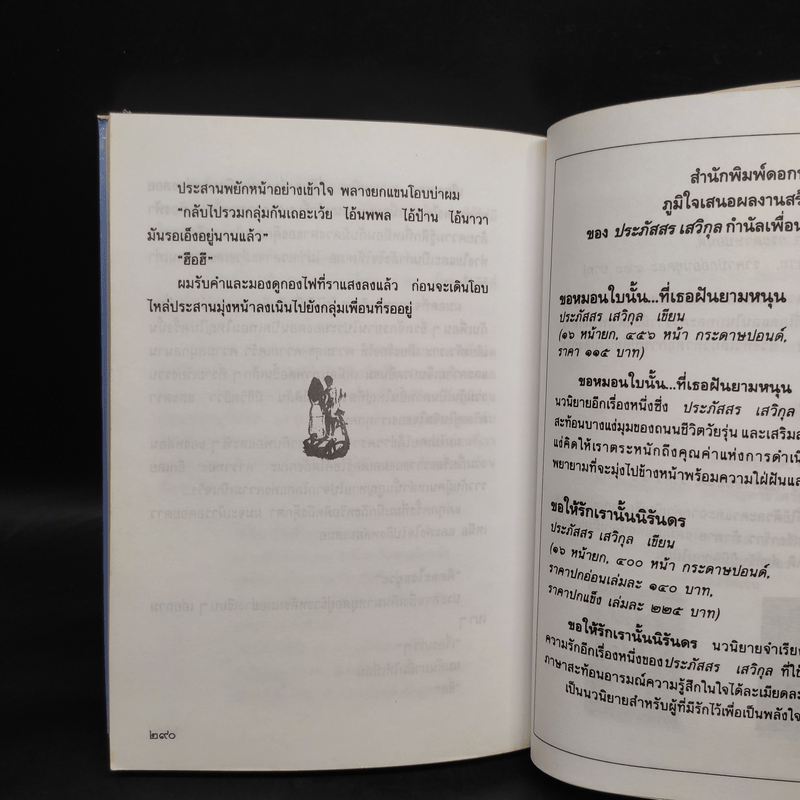 ประสานพยักหน้าอย่างเข้าใจ พลางยกแขนโอบบ่าผม
"กลับไปรวมกลุ่มกันเถอะเว้ย ไอ้นพพล ไอ้ป้าน ไอ้นาวา
มันรอเอ็งอยู่นานแล้ว"
"ฮือฮึ"
ผมรับคำและมองดูกองไฟที่ราแสงลงแล้ว ก่อนจะเดินโอบ
ไหล่ประสานมุ่งหน้าลงเนินไปยังกลุ่มเพื่อนที่รออยู่
๒๙๐
สำนักพิมพ์ดอก
ภูมิใจเสนอผลงานสร้
ของ ประภัสสร เสวิกุล กำนัลเพื่อน
ขอหมอนใบนั้น...ที่เธอฝันยามหนุน
ประภัสสร เสวิกุล เขียน
(๑๖ หน้ายก, ๔๕๖ หน้า กระดาษปอนด์,
ราคา ๑๑๕ บาท)
ขอหมอนใบนั้น...ที่เธอฝันยามหนุน
นวนิยายอีกเรื่องหนึ่งซึ่ง ประภัสสร เสวิกุล
สะท้อนบางแง่มุมของถนนชีวิตวัยรุ่น และเสริมส
แง่คิดให้เราตระหนักถึงคุณค่าแห่งการดำเนิ
พยายามที่จะมุ่งไปข้างหน้าพร้อมความใฝ่ฝันแล
ขอให้รักเรานั้นนิรันดร
ประภัสสร เสวิกุล เขียน
(๑๖ หน้ายก, ๔๐๐ หน้า กระดาษปอนด์,
ราคาปกอ่อนเล่มละ ๑๔๐ บาท,
ราคาปกแข็ง เล่มละ ๒๒๕ บาท)
ขอให้รักเรานั้นนิรันดร นวนิยายจำเรีย
ความรักอีกเรื่องหนึ่งของประภัสสร เสวิกุล ที่ใช้
ภาษาสะท้อนอารมณ์ความรู้สึกในใจได้ละเมียดละ
เป็นนวนิยายสำหรับผู้ที่มีรักไว้เพื่อเป็นพลังใจ